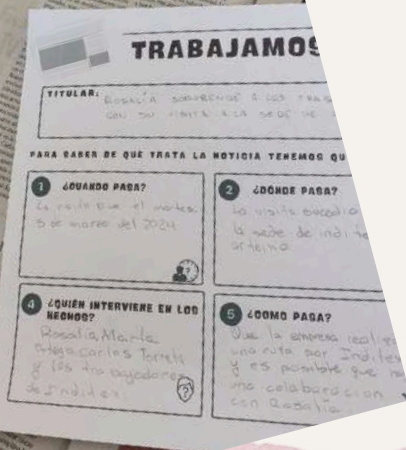 TRABAJAMOS
TITULAR: ROSALÍA SORPRENDE A LOS TRAB
CON SU VISITA A LA SEDE DE
PARA SABER DE QUÉ TRATA LA NOTICIA TENEMOS QU
1 ¿CUANDO PASA?
La visita fue el martes
5 de marzo del 2024
2 ¿DÓNDE PASA?
La visita sucedio
la sede de indite
arteixo
4 ¿QUIÉN INTERVIENE EN LOS
HECHOS?
Rosalía, Marta
Ortega, Carlos Torretta
y los trabajadores
de Inditex
5 ¿COMO PASA?
Que la empresa realizo
una ruta por Inditex
y es posible que
una colaboracion
con Rosalía.